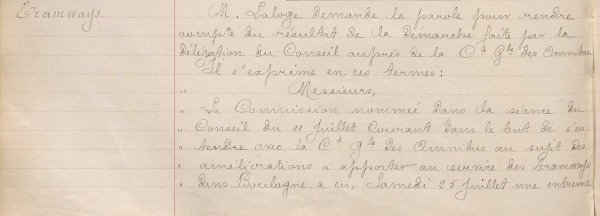 Tramways.
M. Laloge demande la parole pour rendre
compte du résultat de la démarche faite par la
délégation du Conseil auprès de la Cie Gle des Omnibus.
Il s'exprime en ces termes :
" Messieurs,
" La Commission nommée dans la séance du
" Conseil du 11 Juillet Courant dans le but de s'en-
" tendre avec la Cie Gle des Omnibus au sujet des
" améliorations à apporter au service des Tramways
" dans Boulogne, a eu, Samedi 25 Juillet une entrevue